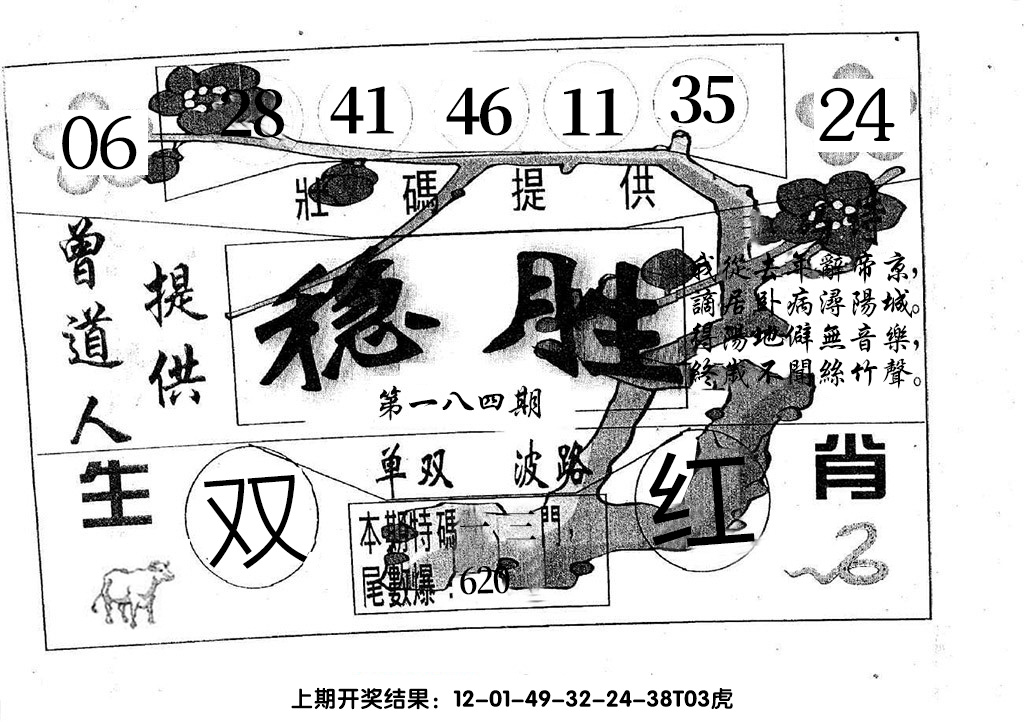 06 28 41 46 11 35 24
壯碼提供
曾道人
提供
稳胜
第一八四期
我從去年辭帝京，
謫居卧病潯陽城。
潯陽地僻無音樂，
終歲不聞絲竹聲。
单双 波路
生肖
双
红
本期特碼一、三門，
尾數爆：620
上期开奖结果：12-01-49-32-24-38T03虎